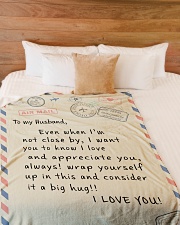 AIR MAIL
To my Husband,
Even when I'm
not close by, I want
you to know I love
and appreciate you,
always! wrap yourself
up in this and consider
it a big hug!!
I LOVE YOU!